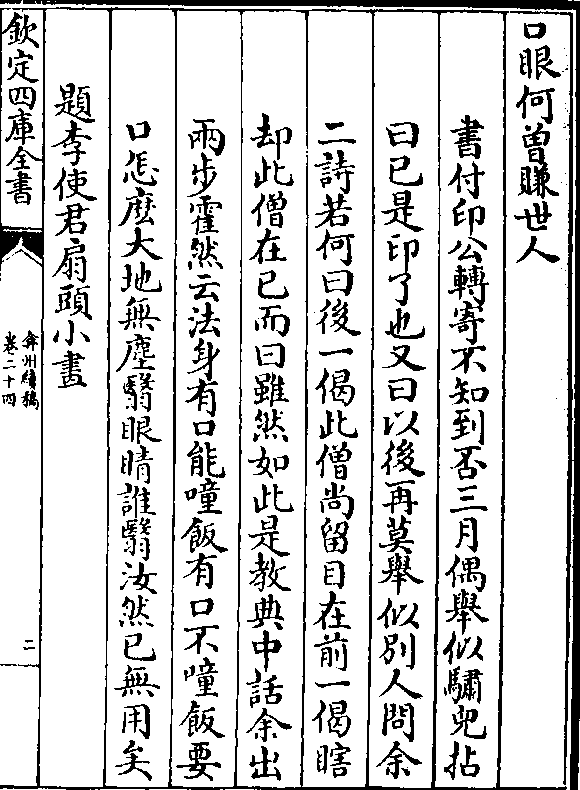 口眼何曾賺世人
書付印公轉寄不知到否三月偶舉似驌兜拈
曰已是印了也又曰以後再莫舉似別人問余
二詩若何曰後一偈此僧尚留目在前一偈瞎
却此僧在已而曰雖然如此是教典中話余出
兩步霍然云法身有口能噇飯有口不噇飯要
口怎麽大地無塵翳眼睛誰翳汝然已無用矣
題李使君扇頭小畫
欽定四庫全書
弇州續稿
卷二十四
二